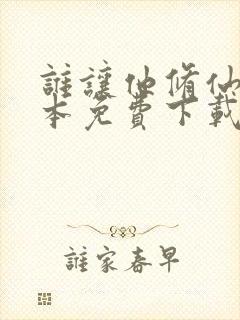 誰讓他脩仙
本免費下載
誰家春早